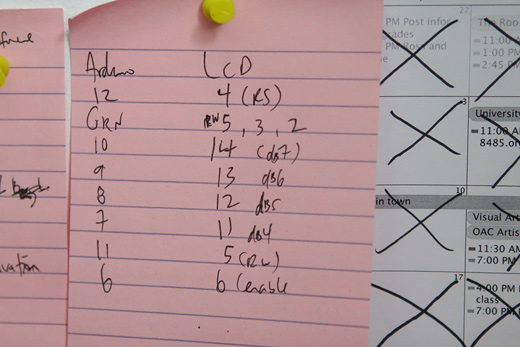 Arduino LCD
12 4 (RS)
GRN RW 5, 3, 2
10 14 (db7)
9 13 db6
8 12 db5
7 11 db4
11 5 (RW)
6 6 (enable
27
PM Post
PM
The Roo
11:00
1:00 PM
2:45 P
3
University
11:00 A
8485.or
10
in town
Visual Art
OAC Artis
11:30 AM
7:00 PM
17
4:00 PM
class
7:00 P